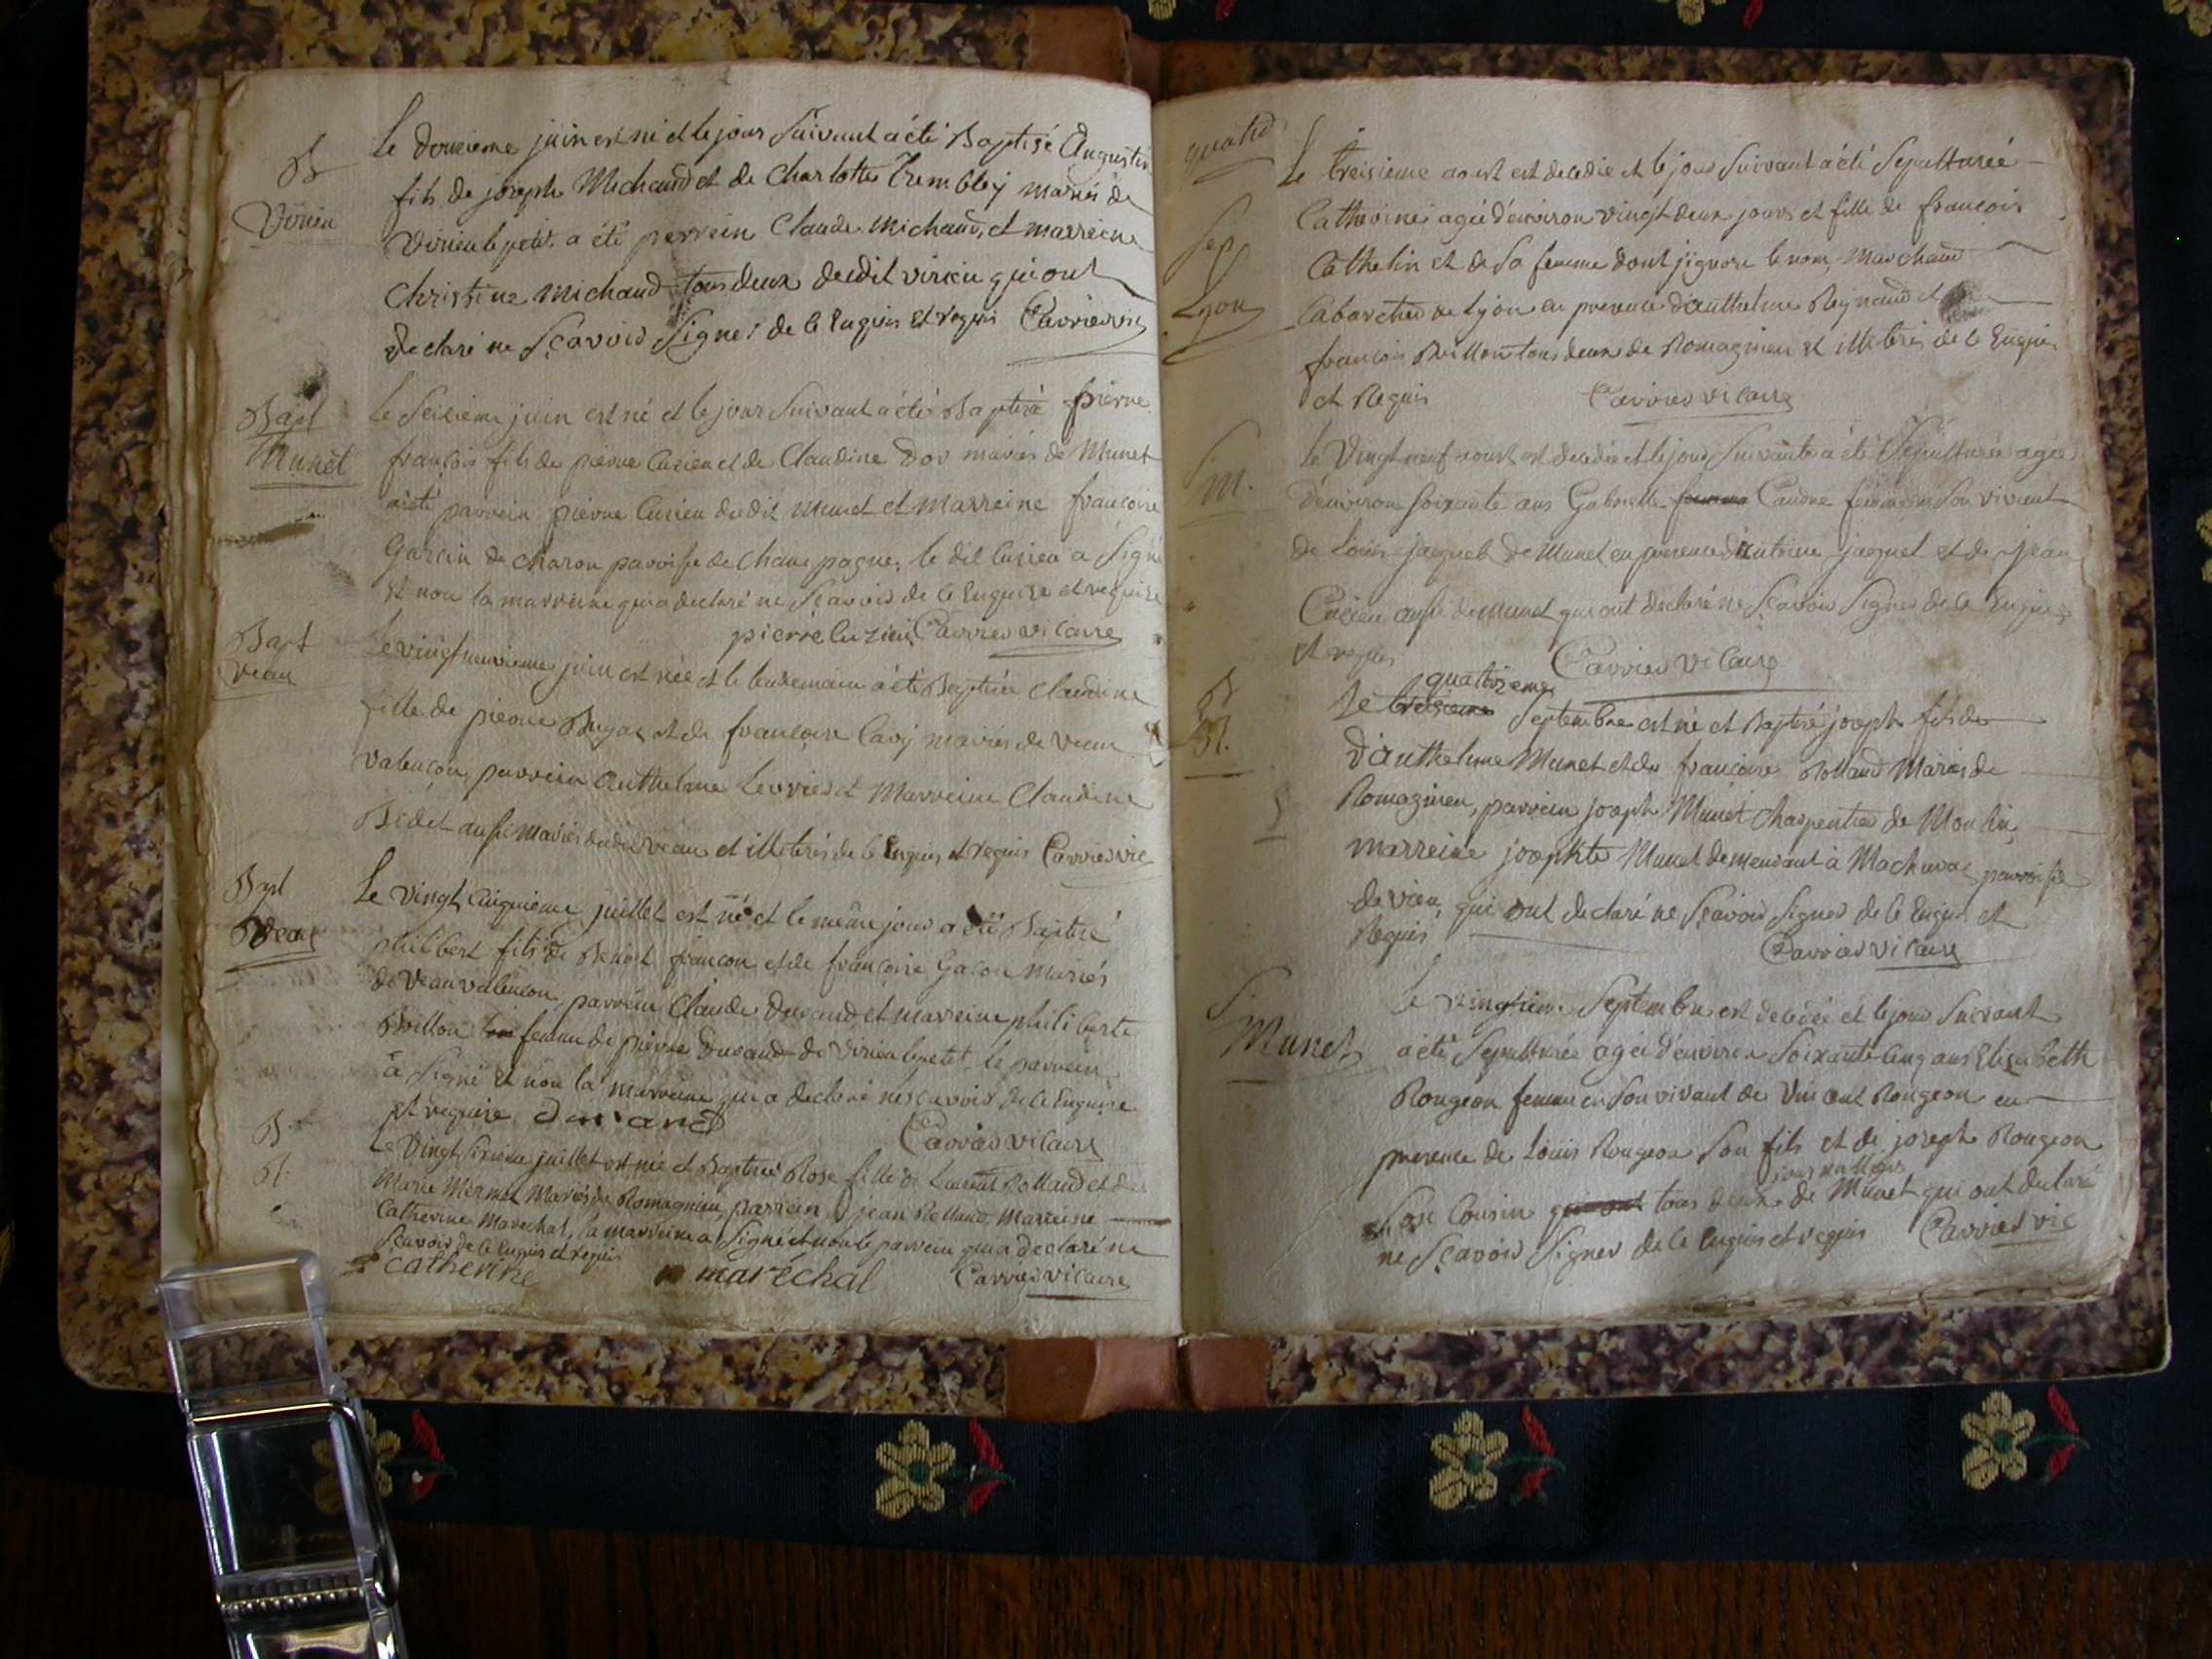 B
Virieu
Le douzieme juin est né et le jour suivant a été Baptisé Augustin
fils de joseph Michaud et de Charlotte Trembley mariés de
Virieu le petit a été parrein Claude Michaud, et marreine
Christine Michaud tous deux dudit virieu qui ont
declaré ne sçavoir signer de ce enquis et requis Carrier vic
Bapt
Munet
Le seizieme juin est né et le jour suivant a été Baptisé pierre
françois fils de pierre Cuzieu et de Claudine Dor mariés de Munet
a été parrein pierre Cuzieu dudit munet et marreine françoise
Garin de charon paroisse de Champagne, le dit Cuzieu a signé
et non la marreine qui a declaré ne sçavoir de ce enquise et requise
pierre luzieu Carrier vicaire
Bapt
veau
Le vingt neuvieme juin est née et le lendemain a été Baptisée Claudine
fille de pierre et de françoise mariés de veau
valençon, parrein Anthelme et Marreine Claudine
Bidet aussi mariés dudit veau et illiterés de ce enquis et requis Carrier vic
Bapt
veau
Le vingt cinquieme juillet est né et le même jour a été Baptisé
philibert fils de Benoit françon et de françoise Gacon mariés
de veau valençon, parrein Claude Durand et marreine philiberte
Boillon femme de pierre Durand de virieu le petit le parrein
a signé et non la marreine qui a declaré ne sçavoir de ce enquise
et requise Durand Carrier vicaire
B
R.
Le vingt sixieme juillet est née et Baptisée Rose fille de Laurent Rolland et de
Marie Mermet Mariés de Romagnieu, parrein jean Rolland, Marreine
Catherine Marechal, la marreine a signé et non le parrein qui a declaré ne
sçavoir de ce enquis et requis
catherine marechal Carrier vicaire
quatre
Sep
Lyon
Le treisieme aoust est decedée et le jour suivant a été sepulturée
Catherine agée d'environ vingt deux jours et fille de françois
Cathelin et de sa femme dont j'ignore le nom, Marchand
Cabaretier de Lyon en presence d'anthelme Reynaud et
françois Boillon tous deux de Romagnieu et illiterés de ce enquis
et Requis Carrier vicaire
S M.
Le Vingt neuf aoust est decedée et le jour suivante a été Sepulturée agée
d'environ soixante ans Gabrielle femme en son vivant
de Louis jacquet de Munet en presence d'antoine jacquet et de jean
Cuzieu aussi de munet qui ont declaré ne sçavoir signer de ce enquis
et requis Carrier vicaire
B
R.
quattorzieme
Le treisieme Septembre est né et Baptisé joseph fils de
d'anthelme Munet et de françoise Rolland Mariés de
Romagnieu, parrein joseph Munet Charpentier de Moulin
marreine josephte Munet demeurant à Machuraz parroisse
de vieu, qui ont declaré ne sçavoir signer de ce enquis et
Requis Carrier vicaire
S
Munet
Le vingtieme Septembre est decedée et le jour suivant
a été sepulturée agée d'environ soixante cinq ans Elizabeth
Rougeon femme en son vivant de Vincent Rougeon en
presence de Louis Rougeon son fils et de joseph Rougeon
journalliers
son Cousin qui ont tous deux de Munet qui ont declaré
ne sçavoir signer de ce enquis et requis Carrier vic